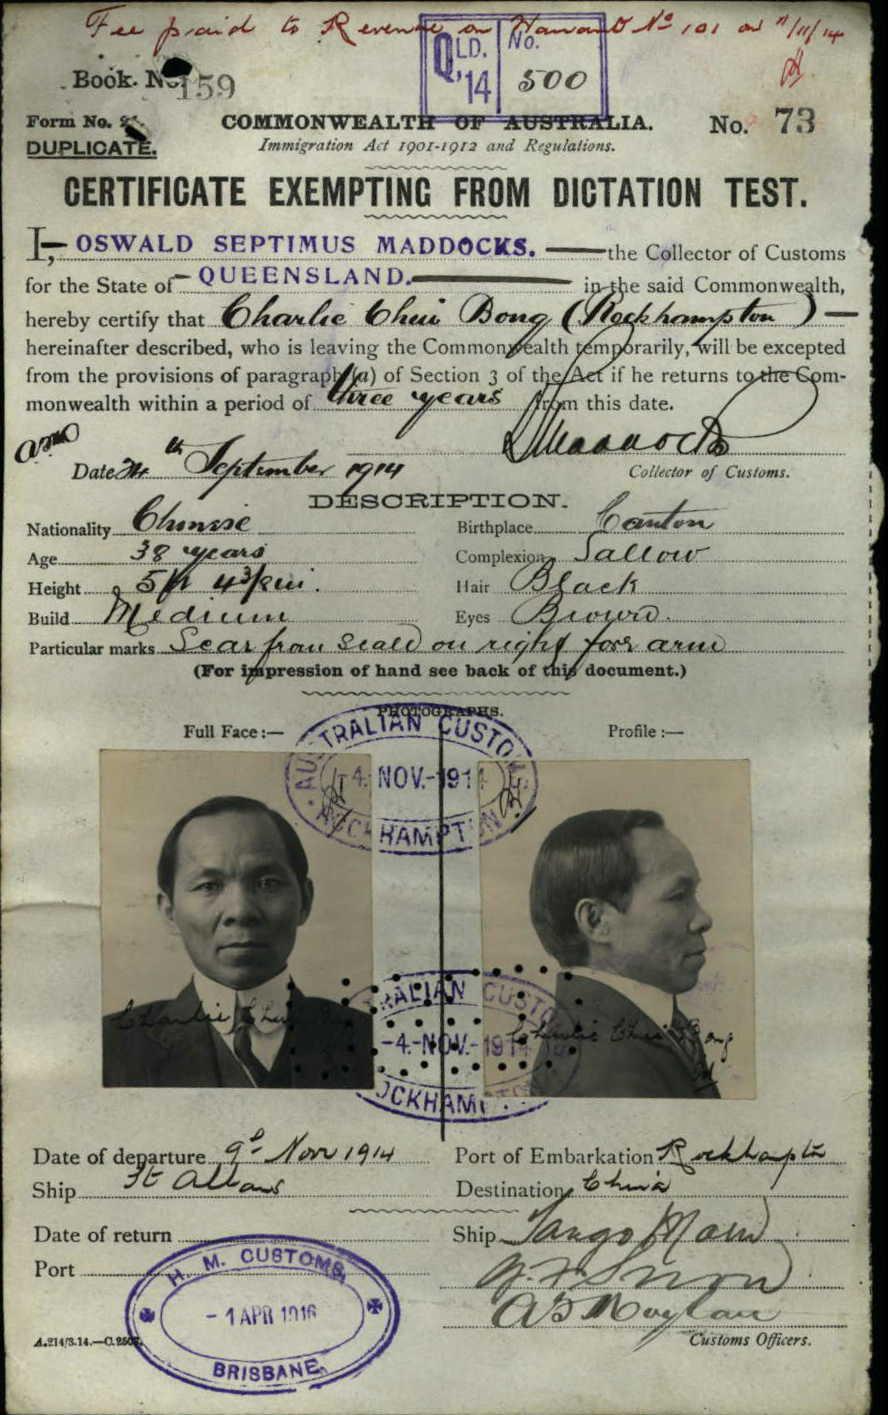 Fee paid to Revenue on Warrant No 101 on 11/11/14
QLD. '14 No. 500
Book. No. 159
Form No. 21.
COMMONWEALTH OF AUSTRALIA.
No. 73
DUPLICATE.
Immigration Act 1901-1912 and Regulations.
CERTIFICATE EXEMPTING FROM DICTATION TEST.
I, OSWALD SEPTIMUS MADDOCKS. the Collector of Customs
for the State of QUEENSLAND. in the said Commonwealth,
hereby certify that Charlie Chui Bong (Rockhampton)
hereinafter described, who is leaving the Commonwealth temporarily, will be excepted
from the provisions of paragraph (a) of Section 3 of the Act if he returns to the Com-
monwealth within a period of three years from this date.
Date 24th September 1914
Collector of Customs.
DESCRIPTION.
Nationality Chinese Birthplace Canton
Age 38 years Complexion Sallow
Height 5ft 4¾in. Hair Black
Build Medium Eyes Brown.
Particular marks Scar from scald on right fore arm
(For impression of hand see back of this document.)
PHOTOGRAPHS.
Full Face :— Profile :—
AUSTRALIAN CUSTOMS
4. NOV. 1914
ROCKHAMPTON
AUSTRALIAN CUSTOMS
-4. NOV. 1914
ROCKHAMPTON
Charlie Chui
Charlie Chui Bong
Date of departure 9th Novr 1914 Port of Embarkation Rockhampton
Ship St Albans Destination China
Date of return Ship Tango Maru
Port
H. M. CUSTOMS,
- 1 APR 1916
BRISBANE.
A.214/3.14.—C.2503.
Customs Officers.